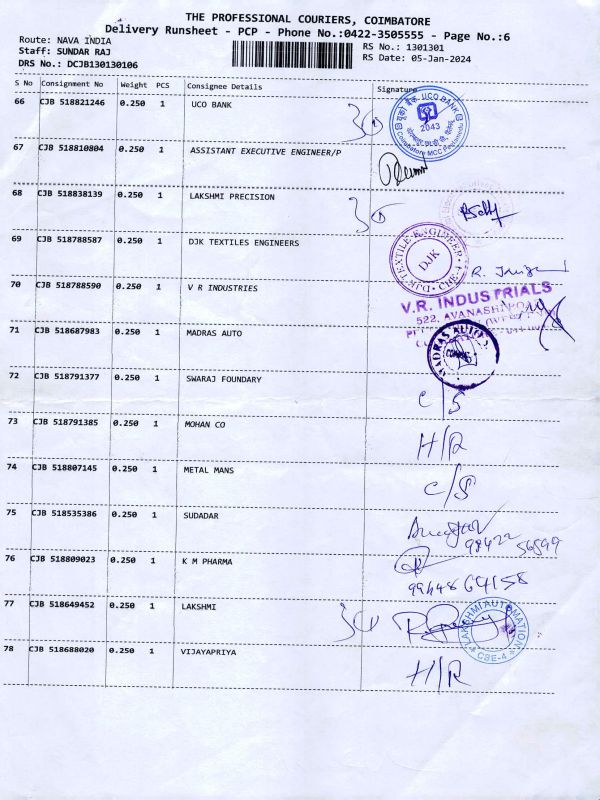 THE PROFESSIONAL COURIERS, COIMBATORE
Delivery Runsheet - PCP - Phone No.:0422-3505555 - Page No.:6
Route: NAVA INDIA
RS No.: 1301301
Staff: SUNDAR RAJ
RS Date: 05-Jan-2024
DRS No.: DCJB130130106
S No Consignment No Weight PCS Consignee Details Signature
66 CJB 518821246 0.250 1 UCO BANK
UCO BANK
2043
67 CJB 518810804 0.250 1 ASSISTANT EXECUTIVE ENGINEER/P
68 CJB 518838139 0.250 1 LAKSHMI PRECISION
69 CJB 518788587 0.250 1 DJK TEXTILES ENGINEERS
DJK TEXTILE ENGINEER
DJK
70 CJB 518788590 0.250 1 V R INDUSTRIES
V.R. INDUSTRIALS
522, AVANASHI ROAD
71 CJB 518687983 0.250 1 MADRAS AUTO
MADRAS AUTO
72 CJB 518791377 0.250 1 SWARAJ FOUNDARY
C/S
73 CJB 518791385 0.250 1 MOHAN CO
H/R
74 CJB 518807145 0.250 1 METAL MANS
C/S
75 CJB 518535386 0.250 1 SUDADAR
98422 56599
76 CJB 518809023 0.250 1 K M PHARMA
77 CJB 518649452 0.250 1 LAKSHMI
LAKSHMI AUTOMATION
CBE-4
78 CJB 518688020 0.250 1 VIJAYAPRIYA
H/R